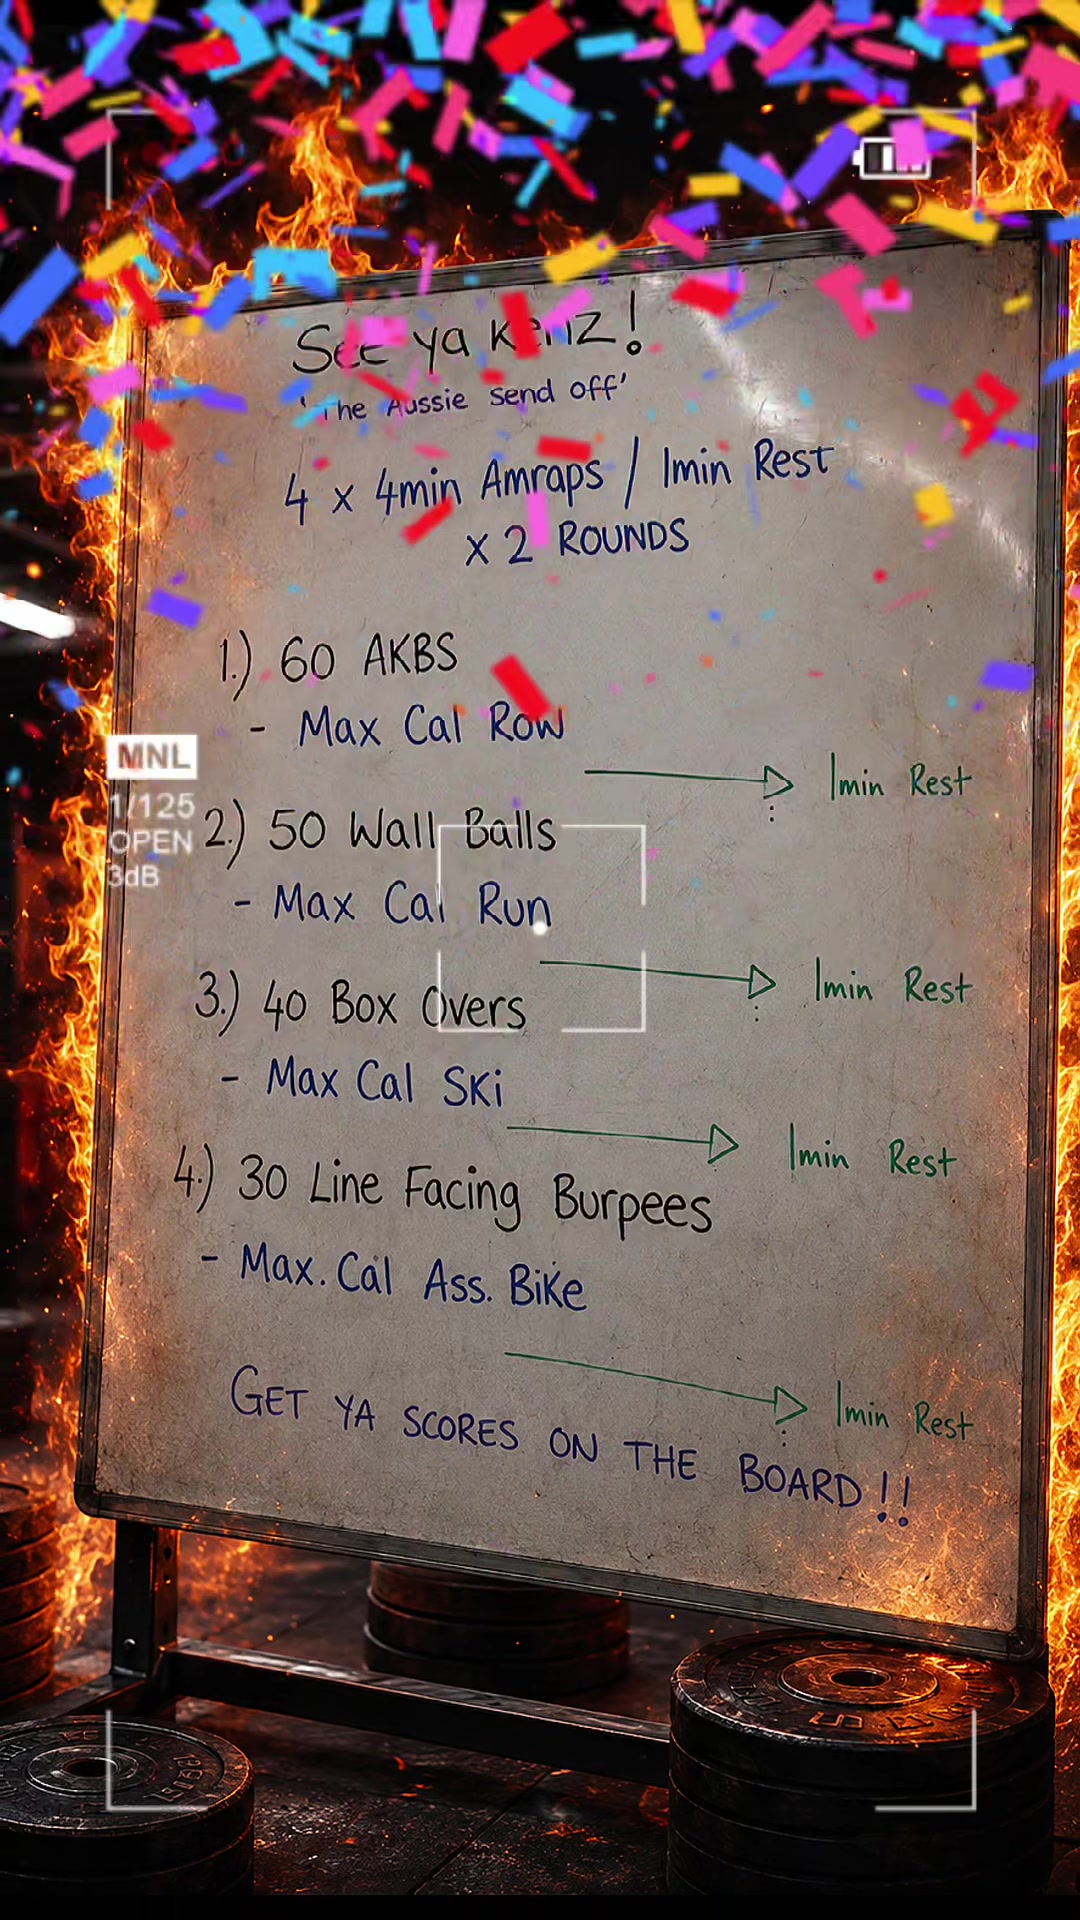 See ya Kenz!
'The Aussie Send off'
4 x 4min Amraps / 1min Rest
x 2 ROUNDS
1.) 60 AKBS
- Max Cal Row
1min Rest
MNL
1/125
OPEN
3dB
2.) 50 Wall Balls
- Max Cal Run
1min Rest
3.) 40 Box Overs
- Max Cal Ski
1min Rest
4.) 30 Line Facing Burpees
- Max. Cal Ass. Bike
1min Rest
GET YA SCORES ON THE BOARD!!